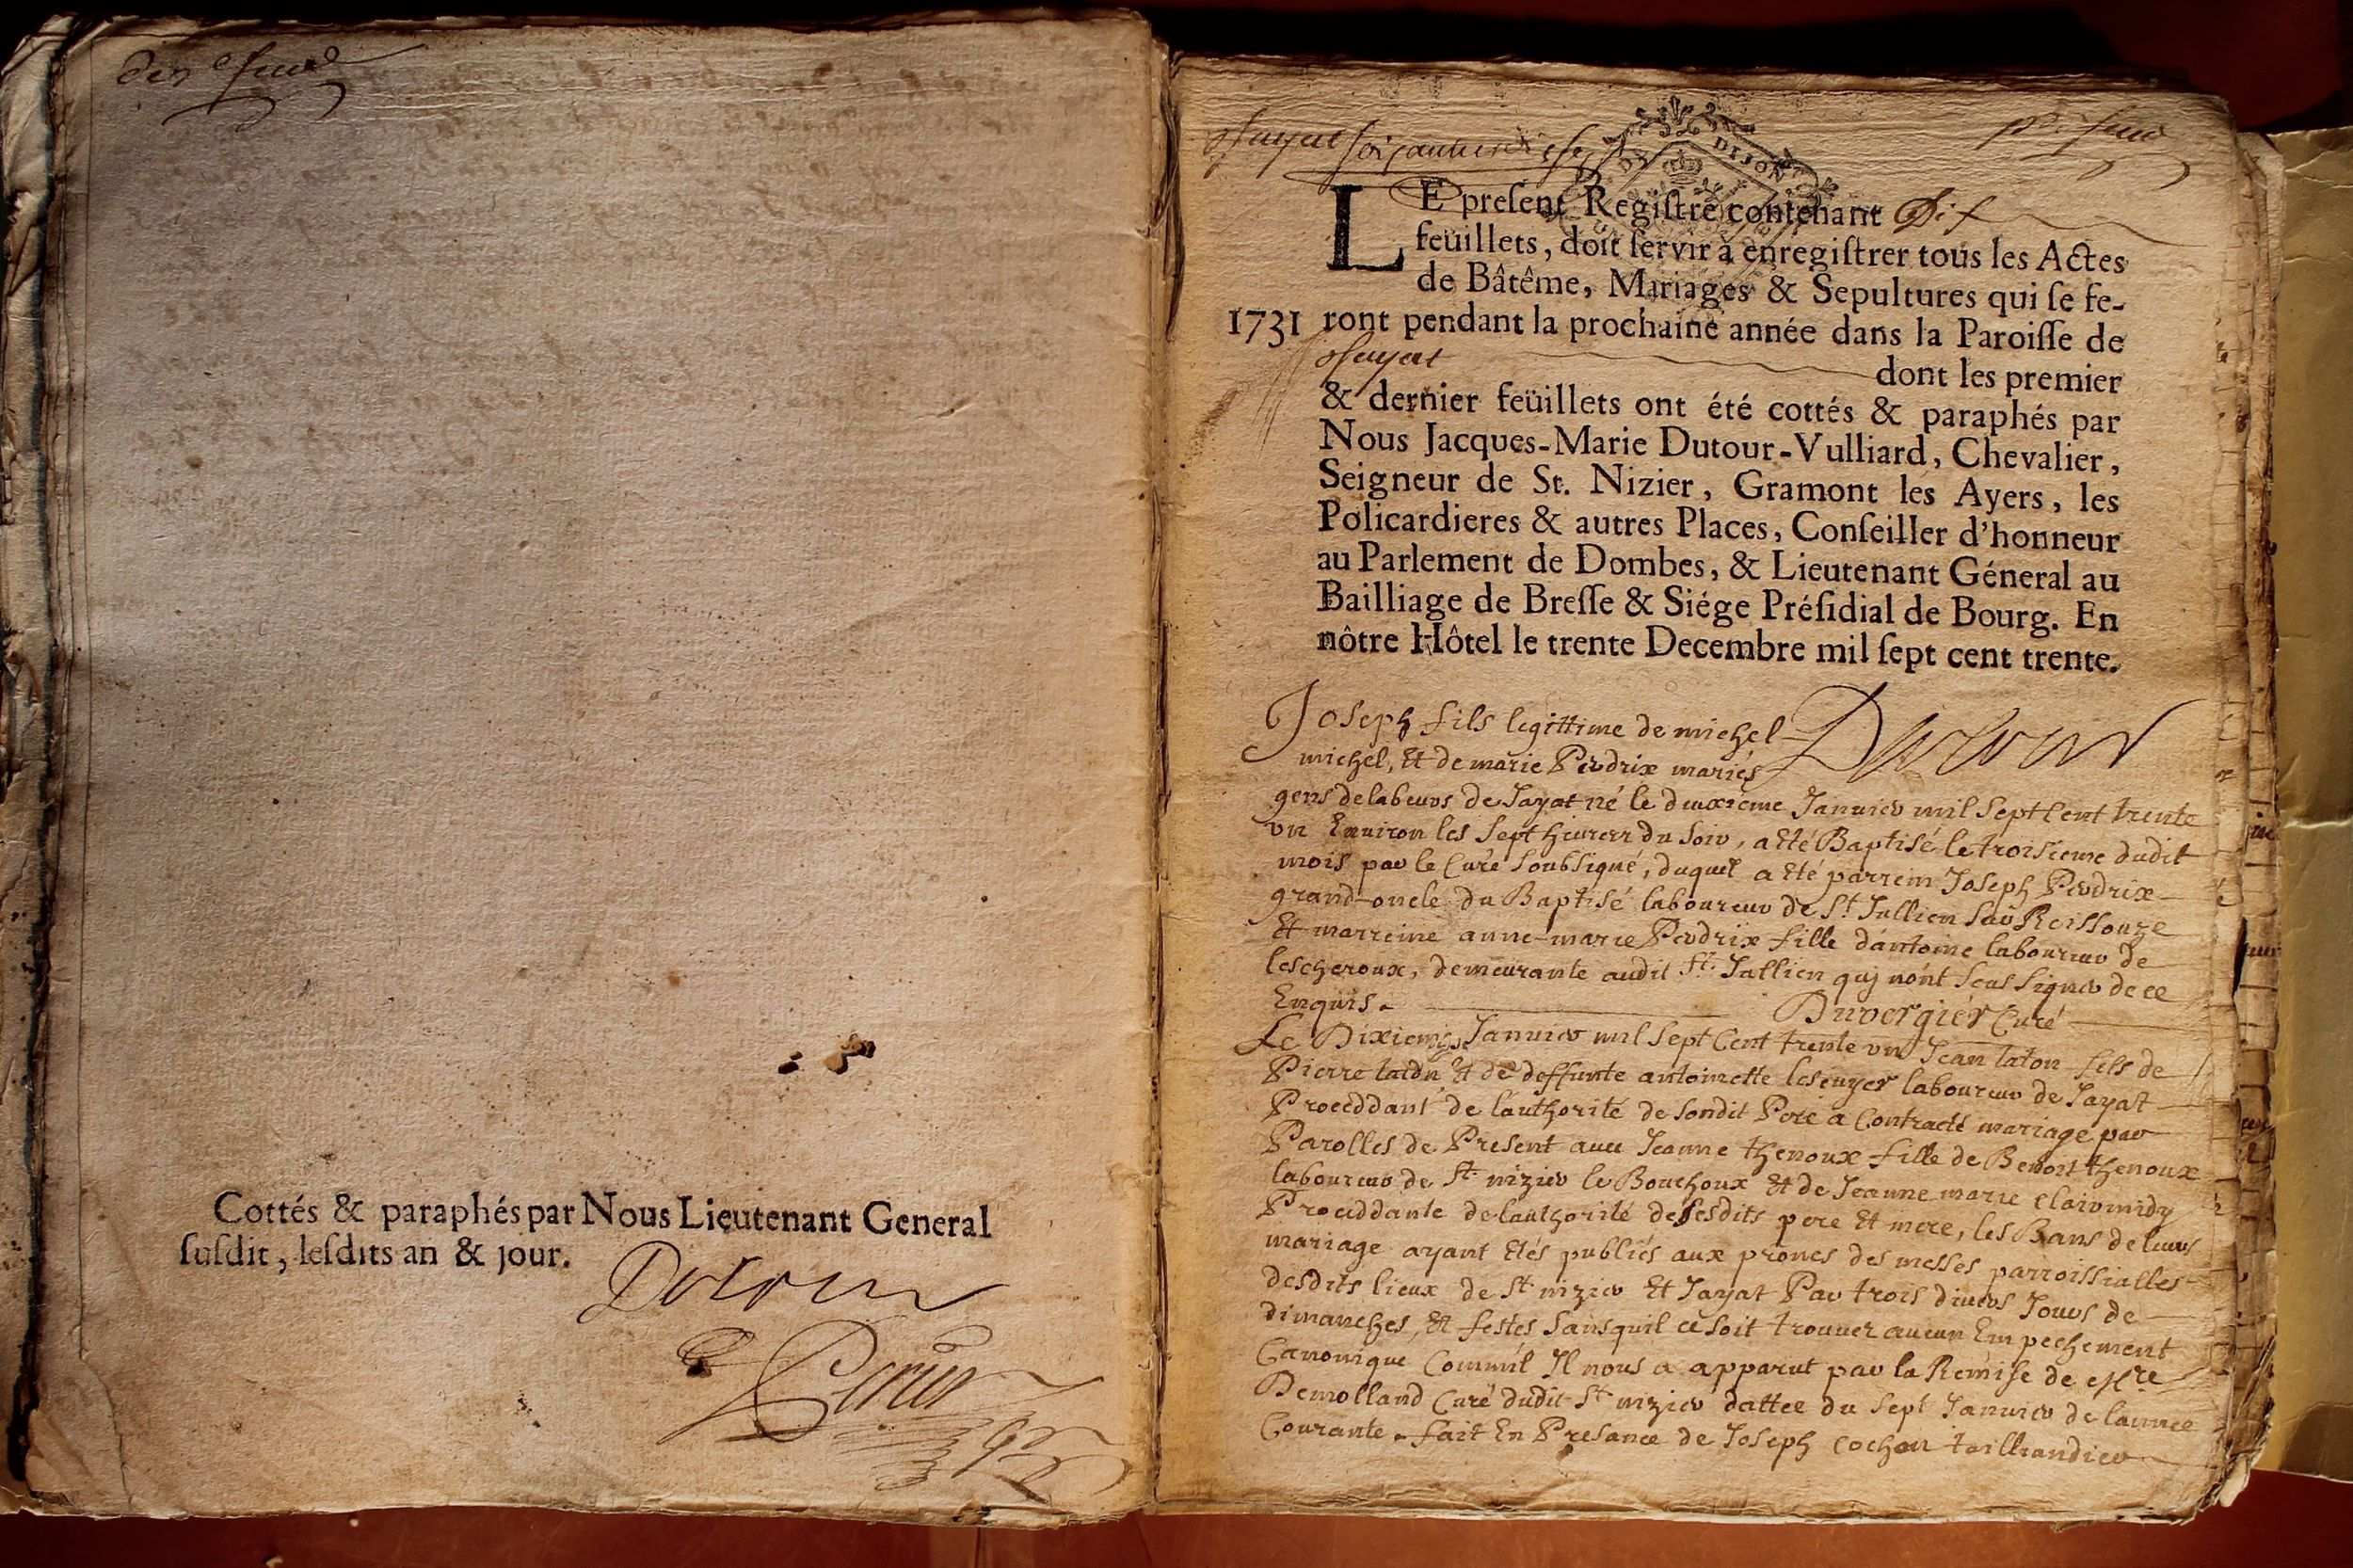 der feuil
Cottés & paraphés par Nous Lieutenant General
ſuſdit, leſdits an & jour.
Dutour
Jayat
DIJON
pr. feuil
LE preſent Regiſtre contenant Dix
feüillets, doit ſervir à enregiſtrer tous les Actes
de Bâtême, Mariages & Sepultures qui ſe fe-
1731 ront pendant la prochaine année dans la Paroiſſe de
Jayat dont les premier
& dernier feüillets ont été cottés & paraphés par
Nous Jacques-Marie Dutour-Vulliard, Chevalier,
Seigneur de St. Nizier, Gramont les Ayers, les
Policardieres & autres Places, Conſeiller d'honneur
au Parlement de Dombes, & Lieutenant Géneral au
Bailliage de Breſſe & Siége Préſidial de Bourg. En
nôtre Hôtel le trente Decembre mil ſept cent trente.
Dutour
Joseph fils legittime de michel
michel, Et de marie Perdrix mariés
gens de labeurs de Jayat né le deuxieme Janvier mil Sept Cent trente
un Environ les Sept heures du Soir, a Eté Baptisé le troisieme dudit
mois par le Curé Soubsigné, duquel a Eté parrein Joseph Perdrix
grand-oncle du Baptisé laboureur de St. Jullien Sur Reissouze
Et marreine anne-marie Perdrix fille d'antoine laboureur de
lescheroux, demeurante audit St. Jullien quj nont Sceu Signer de ce
Enquis. Duvergier Curé
Le Dixieme Janvier mil Sept Cent trente un Jean taton fils de
Pierre taton Et de deffunte antoinette lescuyer laboureur de Jayat
Proceddant de lauthorité de Sondit Pere a Contracté mariage par
Parolles de Present avec Jeanne thenoux fille de Benoit thenoux
laboureur de St. nizier le Bouchoux Et de Jeanne marie clairmidy
Proceddante de lauthorité de Sesdits pere Et mere, les Bans de leurs
mariage ayant Etés publiés aux prones des messes parroissialles
desdits lieux de St nizier Et Jayat Par trois divers Jours de
dimanches, Et festes Sansquil ce Soit trouver aucun Empechement
Canonique Comm'il Il nous a apparut par la Remise de Mre
Demolland Curé dudit St nizier dattée du Sept Janvier de lannée
Courante. fait En Presance de Joseph cochon taillandier